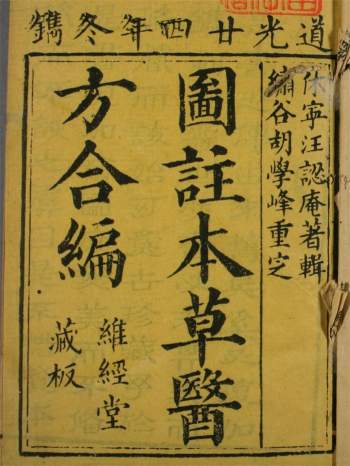 道光廿四年冬鐫
休寧汪訒庵著輯
繡谷胡學峰重定
圖註本草醫
方合編
維經堂
藏板